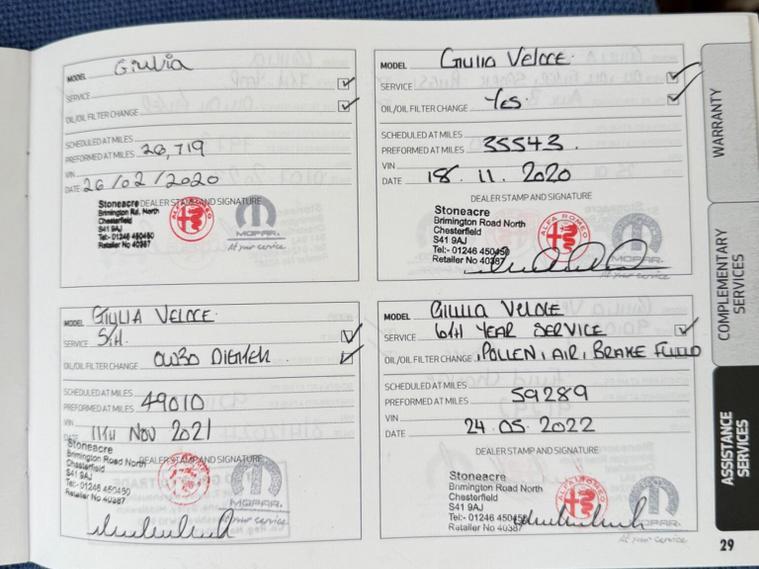 MODEL Giulia
SERVICE
OIL/OIL FILTER CHANGE
SCHEDULED AT MILES
PREFORMED AT MILES 26,719
VIN
DATE 26/02/2020
DEALER STAMP AND SIGNATURE
Stoneacre
Brimington Rd. North
Chesterfield
S41 9AJ
Tel:- 01246 450450
Retailer No 40387
ALFA ROMEO
MOPAR
At your service
MODEL Giulia Veloce
SERVICE
OIL/OIL FILTER CHANGE Yes.
SCHEDULED AT MILES
PREFORMED AT MILES 35543.
VIN
DATE 18. 11. 2020
DEALER STAMP AND SIGNATURE
Stoneacre
Brimington Road North
Chesterfield
S41 9AJ
Tel:- 01246 450450
Retailer No 40387
ALFA ROMEO
MOPAR
At your service
MODEL GIULIA VELOCE.
SERVICE
OIL/OIL FILTER CHANGE 0W30
SCHEDULED AT MILES
PREFORMED AT MILES 49010
VIN
DATE 11TH NOV 2021
DEALER STAMP AND SIGNATURE
Stoneacre
Brimington Road North
Chesterfield
S41 9AJ
Tel:- 01246 450450
Retailer No 40387
MOPAR
At your service
MODEL GIULIA VELOCE
SERVICE 6TH YEAR SERVICE
OIL/OIL FILTER CHANGE , POLLEN, AIR, BRAKE FLUID
SCHEDULED AT MILES
PREFORMED AT MILES 59289
VIN
DATE 24.05.2022
DEALER STAMP AND SIGNATURE
Stoneacre
Brimington Road North
Chesterfield
S41 9AJ
Tel:- 01246 450450
Retailer No 40387
ALFA ROMEO
MOPAR
At your service
WARRANTY
COMPLEMENTARY
SERVICES
ASSISTANCE
SERVICES
29